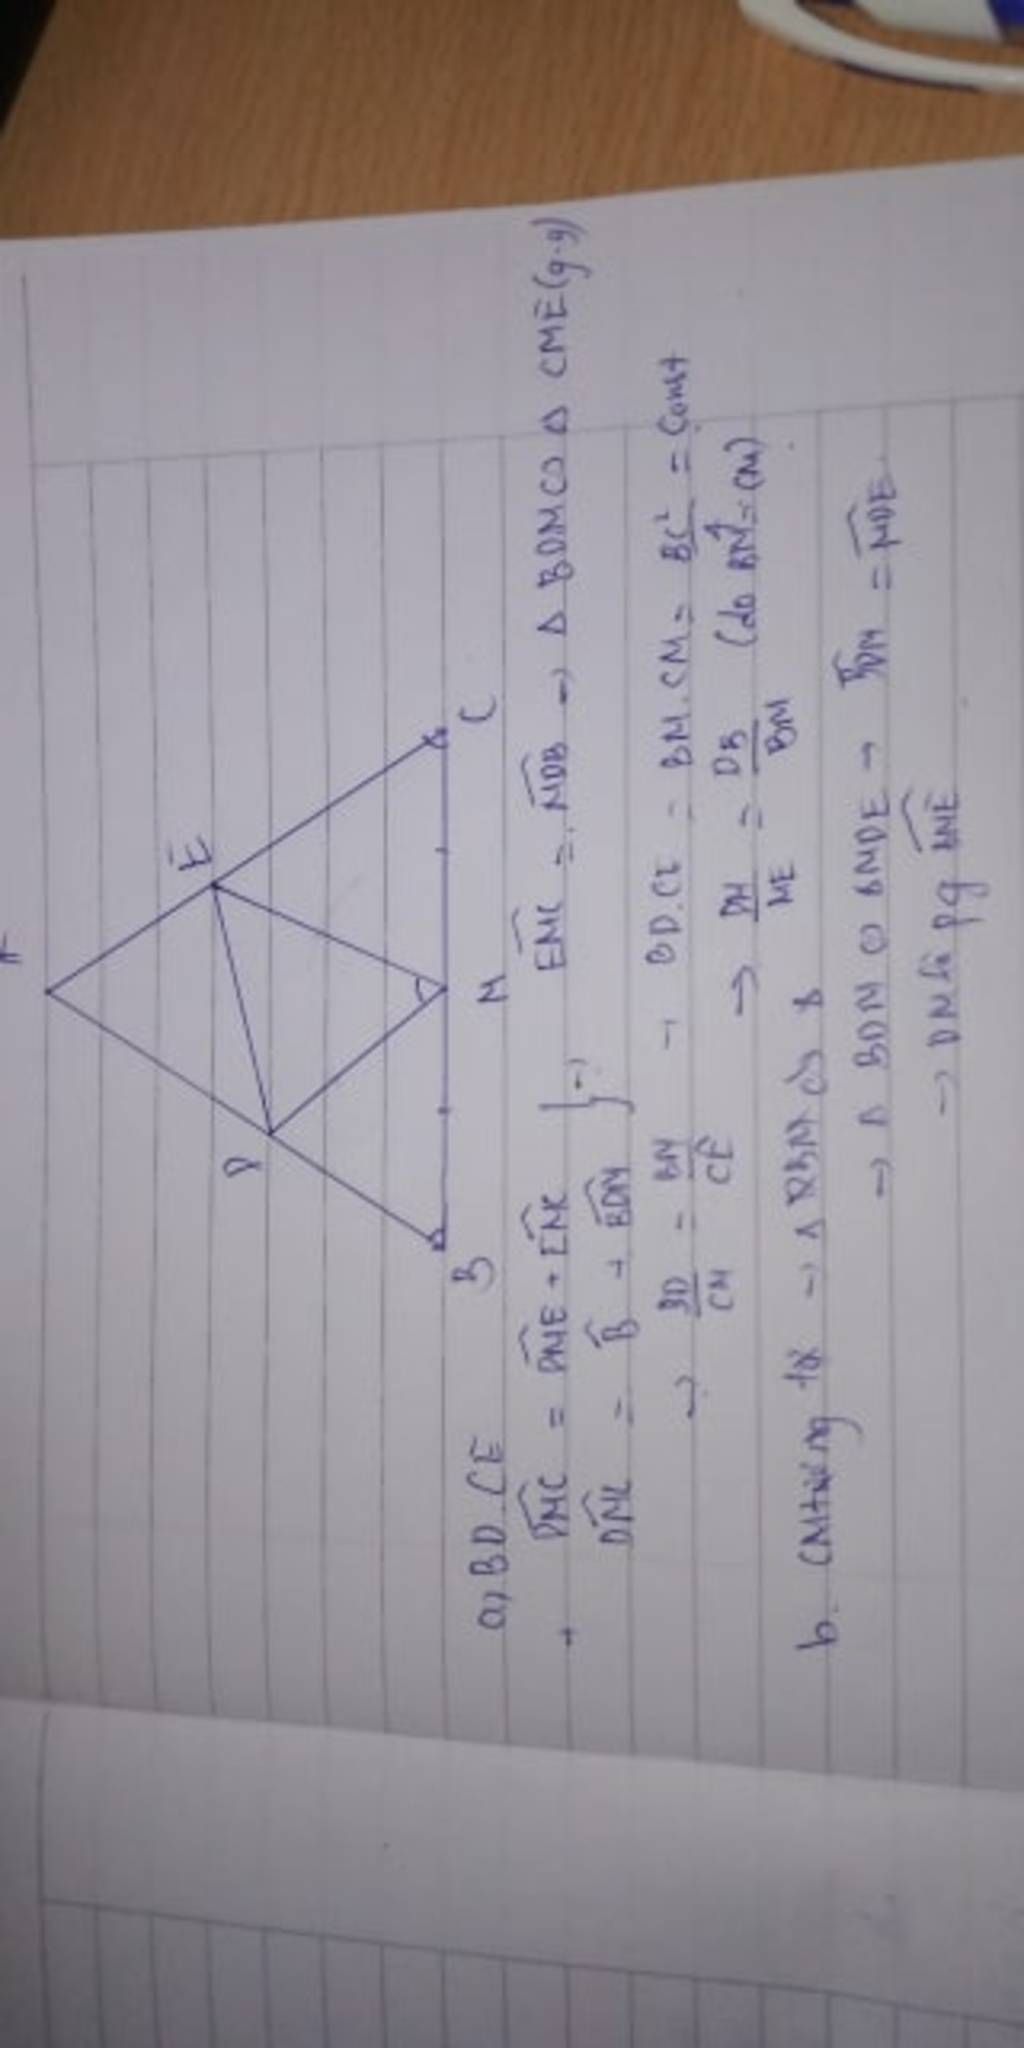 A
E
D
B
M
C
a, BD.CE
+ DMC = DME + EMC
EMC = MDB → Δ BDM ∽ Δ CME (g.g)
DMC = B + BDM
→ BD/CM = BM/CE → BD.CE = BM.CM = BC²/4 = Const
→ DM/ME = DB/BM (do BM = CM)
b. CM tương tự →
→ Δ BDM ∽ ΔMDE → BDM = MDE
→ DM là pg